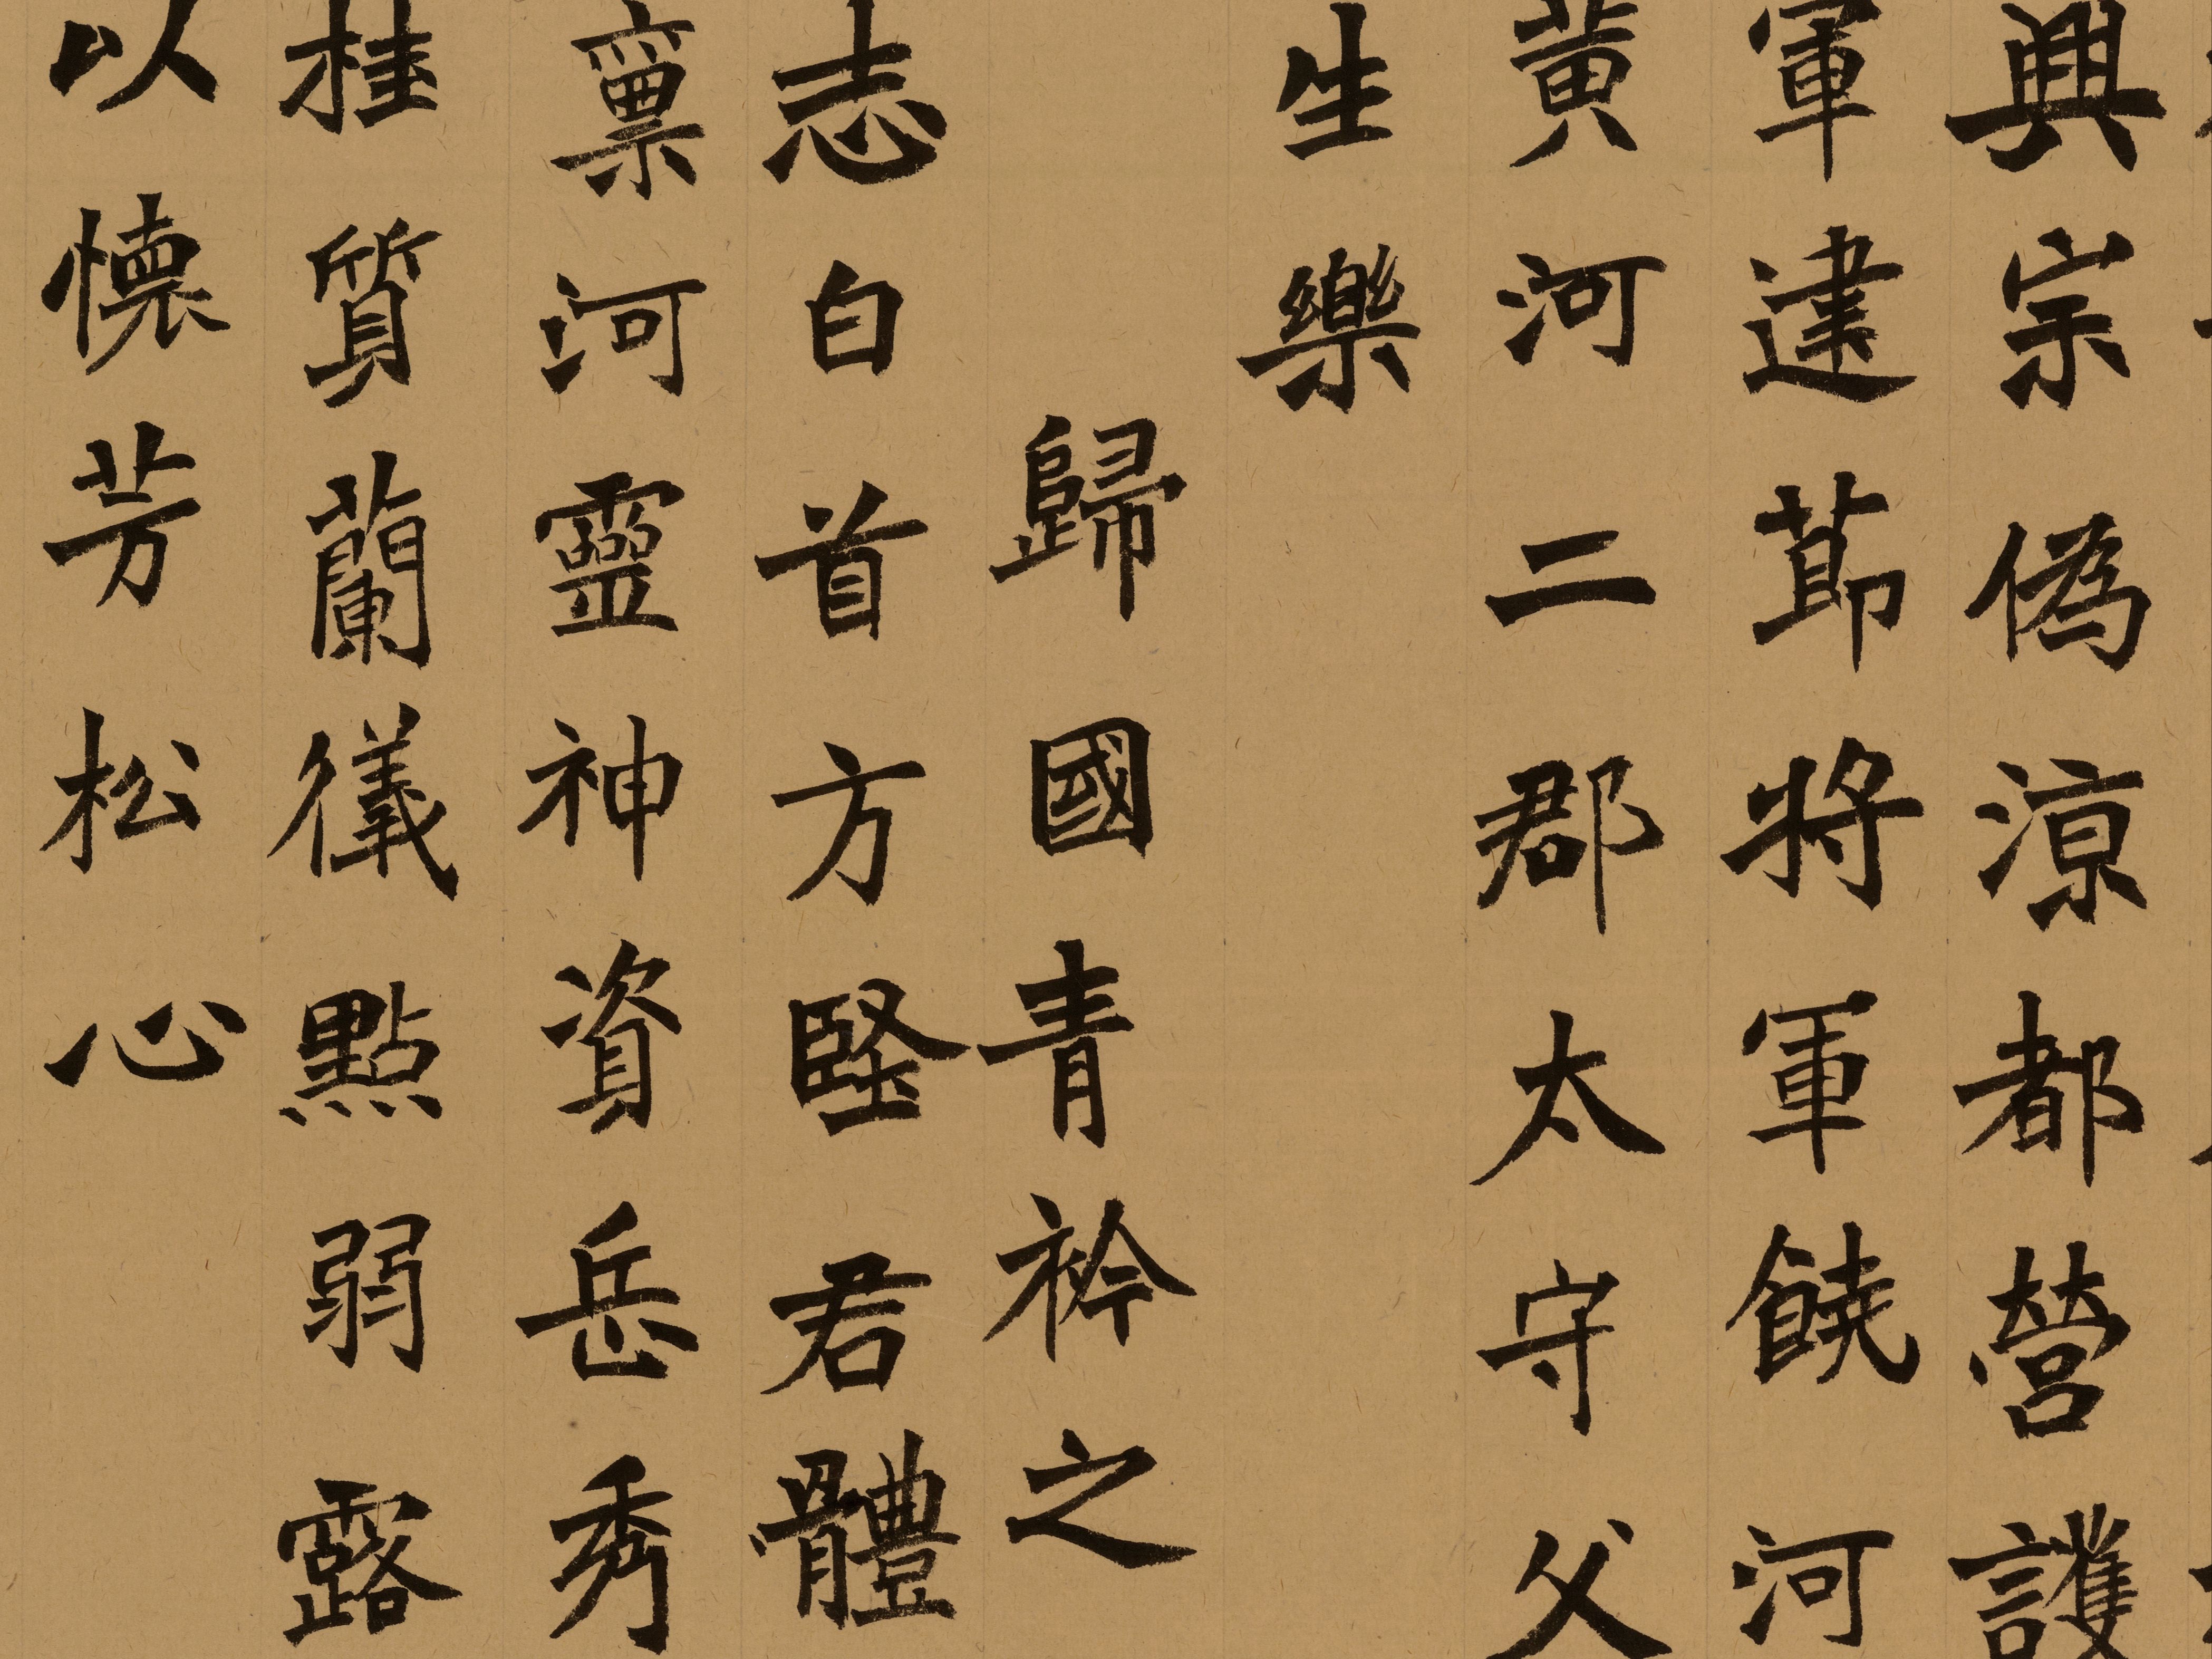 興宗偽涼都營護
軍建節將軍饒河
黃河二郡太守父
生樂
歸國青衿之
志白首方堅君體
稟河靈神資岳秀
桂質蘭儀點弱露
以懷芳松心